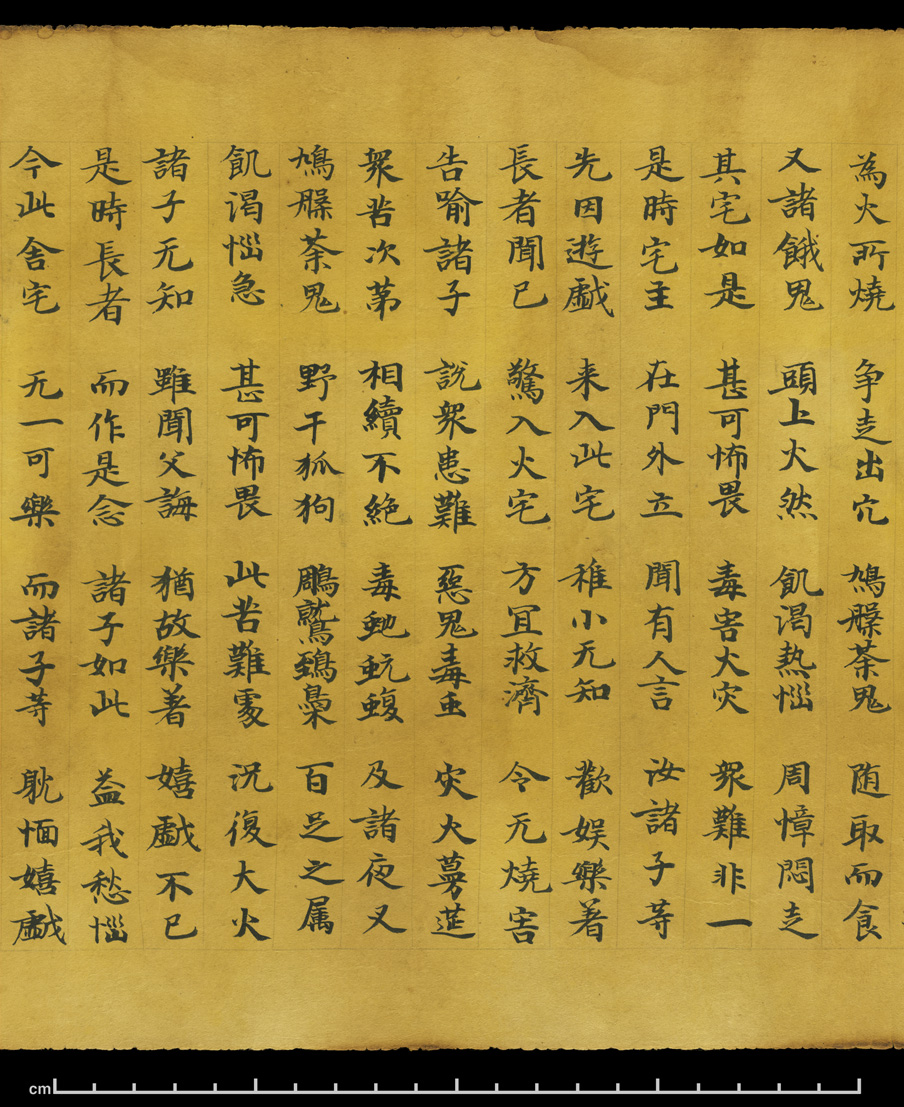 為火所燒 争走出穴 鳩槃荼鬼 随取而食
又諸餓鬼 頭上火然 飢渴热惱 周慞悶走
其宅如是 甚可怖畏 毒害火灾 衆難非一
是時宅主 在門外立 聞有人言 汝諸子等
先因遊戯 来入此宅 稚小无知 歡娱樂著
長者聞已 驚入火宅 方冝救濟 令无燒害
告喻諸子 說衆患難 惡鬼毒虫 灾火蔓莚
衆苦次苐 相續不絶 毒虵蚖蝮 及諸夜叉
鳩槃荼鬼 野干狐狗 鵰鷲鵄梟 百足之属
飢渴惱急 甚可怖畏 此苦難處 況復大火
諸子无知 雖聞父誨 猶故樂著 嬉戯不已
是時長者 而作是念 諸子如此 益我愁惱
今此舎宅 无一可樂 而諸子等 躭湎嬉戯
cm